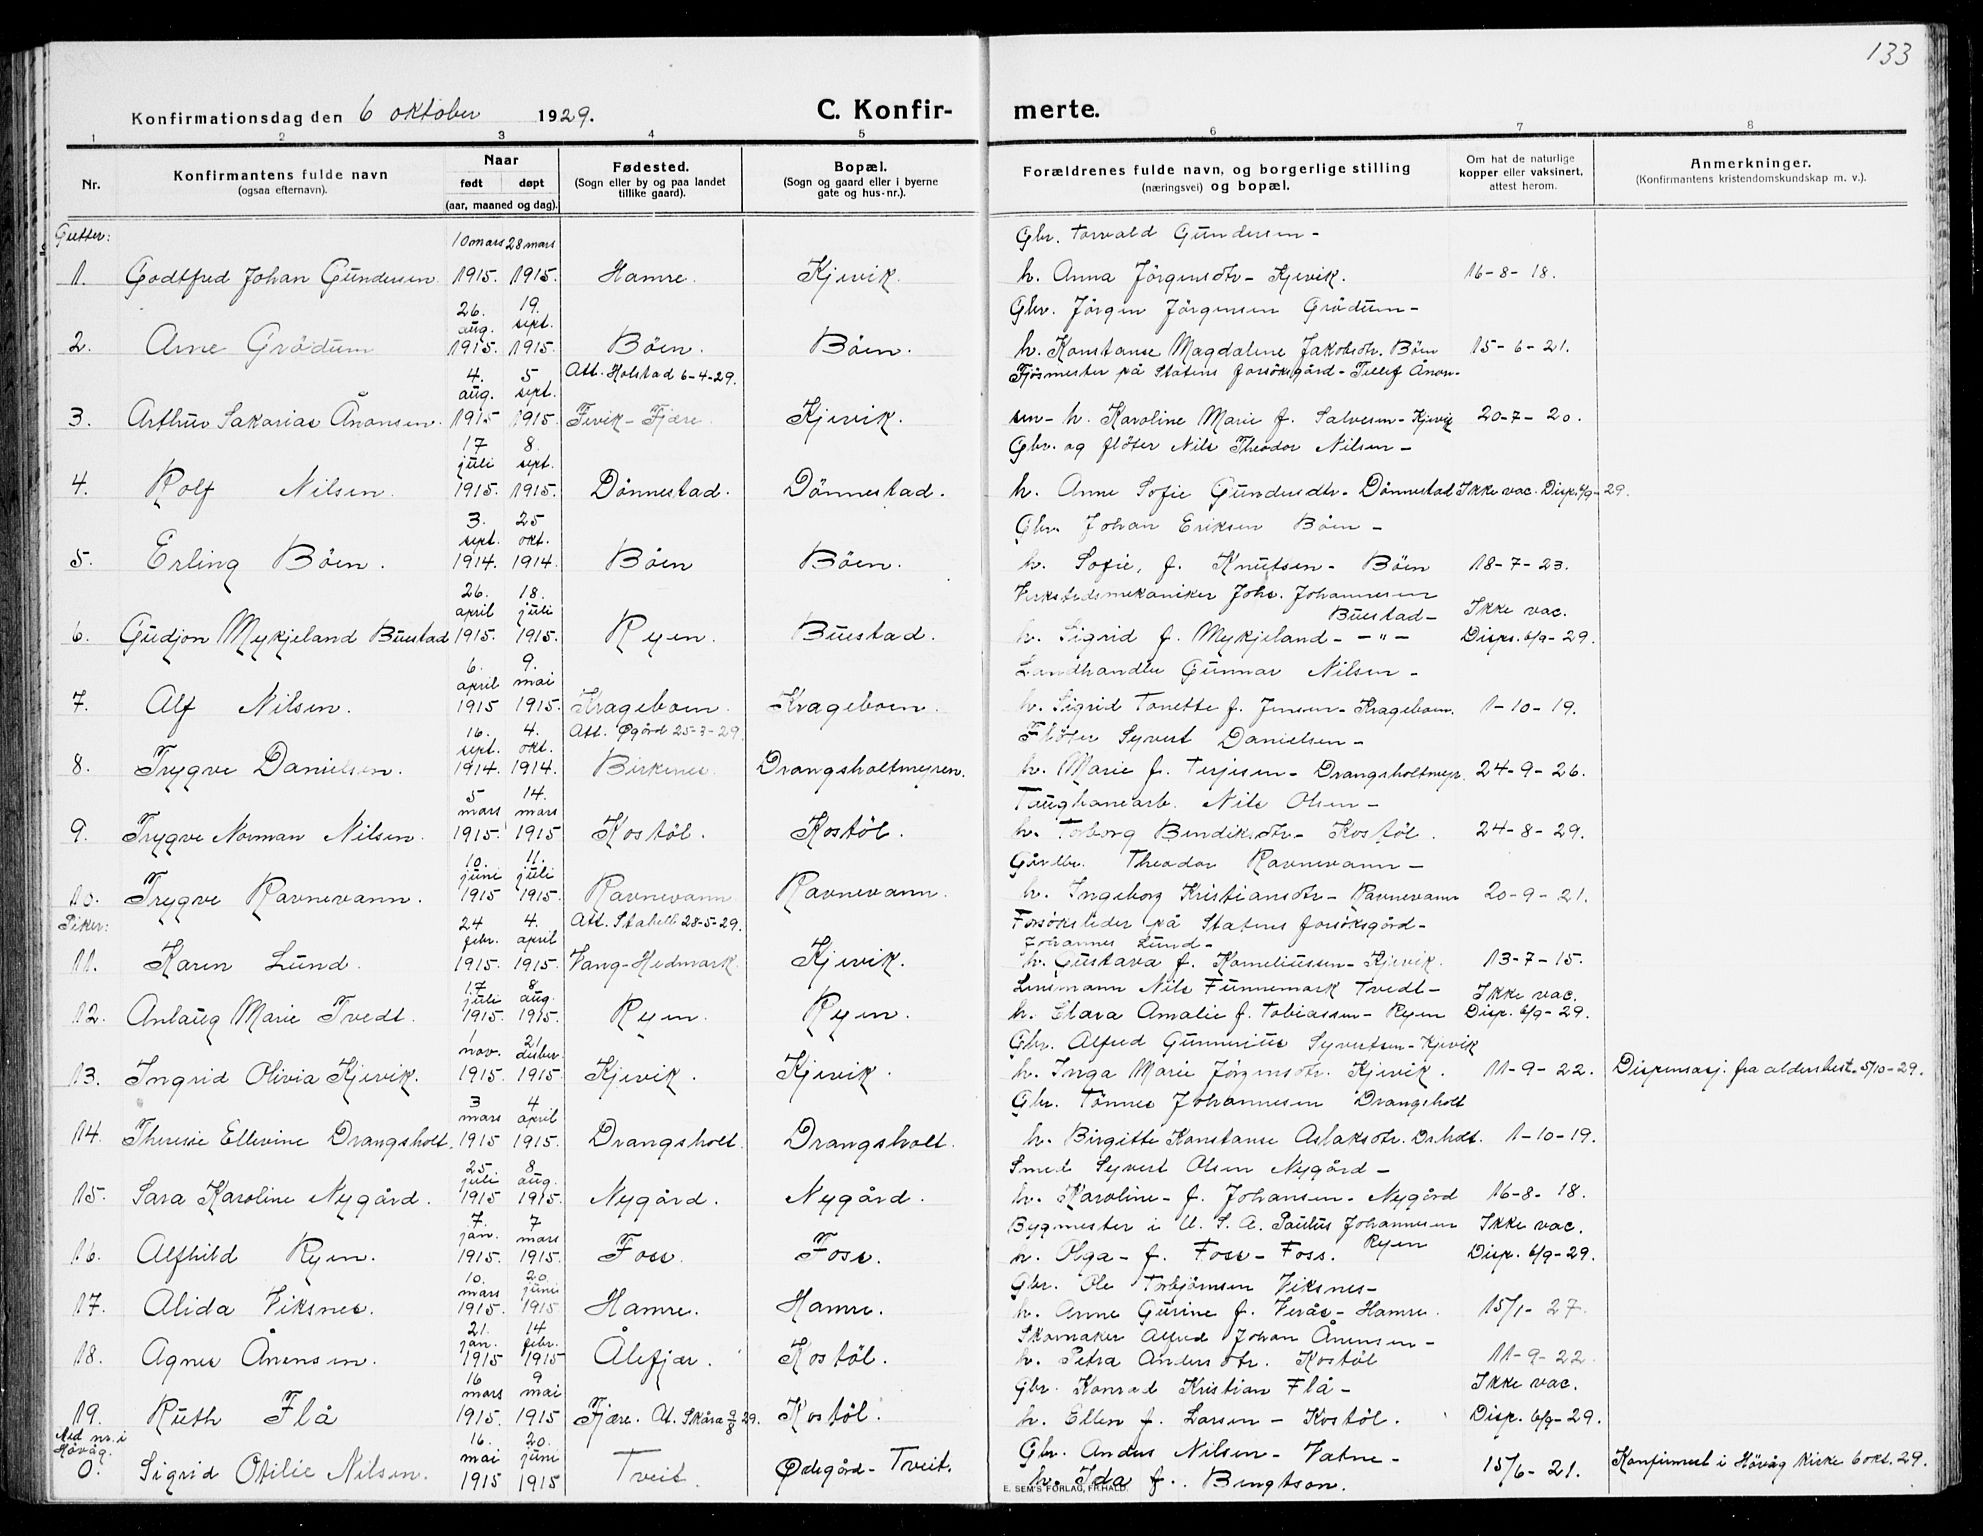 133
Konfirmationsdag den 6 oktober 1929. C. Konfir- merte.
1 2 3 4 5 6 7 8
Nr. Konfirmantens fulde navn (ogsaa efternavn). Naar født døpt (aar, maaned og dag). Fødested. (Sogn eller by og paa landet tillike gaard). Bopæl. (Sogn og gaard eller i byerne gate og hus-nr.). Forældrenes fulde navn, og borgerlige stilling (næringsvei) og bopæl. Om hat de naturlige kopper eller vaksinert, attest herom. Anmerkninger. (Konfirmantens kristendomskundskap m. v.).
Gutter: 10 mars 28 mars Gbr. Torvald Gundersen -
1. Godtfred Johan Gundersen 1915. 1915. Hamre. Kjevik. h. Anna Jörgensdtr - Kjevik. 16-8-18.
26. 19. Gbr. Jörgen Jörgensen Grödum -
aug. sept.
2. Arne Grödum 1915. 1915. Böen. Böen. h. Konstanse Magdalene Jakobsdtr. Böen 15-6-21.
4. 5 Att. Holstad 6-4-29. Fjösmester på Statens forsöksgård - Tellef Ånon-
aug. sept.
3. Arthur Sakarias Ånonsen. 1915 1915. Fevik - Fjære Kjevik. sen - h. Karoline Marie f. Salvesen - Kjevik 20-7-20.
17 8. Gbr. og flöter Nils Theodor Nilsen -
juli sept.
4. Rolf Nilsen. 1915. 1915. Dönnestad. Dönnestad. h. Anne Sofie Gundersdtr - Dönnestad Ikke vac. Disp. 6/9-29.
3. 25 Gbr. Johan Eriksen Böen -
sept. okt.
5. Erling Böen. 1914. 1914. Böen Böen. h. Sofie, f. Knutsen - Böen 18-7-23.
26. 18. Verkstedsmekaniker Johs. Johannessen
april juli Buestad - Ikke vac.
6. Gudjon Mykjeland Buestad 1915. 1915. Ryen. Buestad. h. Sigrid f. Mykjeland - -"- Disps. 6/9-29.
6. 9. Landhandler Gunnar Nilsen -
april mai
7. Alf Nilsen. 1915 1915. Krageboen. Krageboen. h. Sigrid Tonette f. Jensen - Krageboen. 1-10-19.
16. 4. Att. Øgård 25-3-29. Flöter Syvert Danielsen -
sept. okt.
8. Trygve Danielsen. 1914. 1914. Birkenes. Drangsholtmyren. h. Marie f. Terjesen - Drangsholtmyr. 24-9-26.
5 14. Taugbanearb. Nils Olsen -
mars mars
9. Trygve Norman Nilsen. 1915. 1915 Kostöl. Kostöl. h. Torborg Bendiksdtr - Kostöl. 24-8-29.
10. 11. Gårdbr. Theodor Ravnevann -
juni juli
10. Trygve Ravnevann. 1915 1915. Ravnevann Ravnevann. h. Ingeborg Kristiansdtr - Ravnevann 20-9-21.
Piker: 24 4. Att. Stabell 28-5-29. Forsöksleder på Statens forsöksgård -
febr. april Johannes Lund -
11. Karen Lund. 1915. 1915. Vang - Hedmark. Kjevik. h. Gustava f. Korneliussen - Kjevik. 13-7-15.
17 8 Lensmann Nils Funnemark Tvedt -
juli aug. Ikke vac.
12. Anlaug Marie Tvedt. 1915. 1915. Ryen. Ryen. h. Clara Amalie f. Tobiassen - Ryen Disp. 6/9-29.
1 21. Gbr. Alfred Gunnerius Syvertsen - Kjevik
nov. desbr.
13. Ingrid Olivia Kjevik. 1915. 1915. Kjevik. Kjevik. h. Inga Marie Jörgensdtr. Kjevik. 11-9-22. Dispensasj. fra aldersbest. 5/10-29.
3 4 Gbr. Tönnes Johannesen Drangsholt
mars april
14. Theresie Ellevine Drangsholt. 1915 1915. Drangsholt. Drangsholt. h. Birgitte Konstanse Aslaksdtr. Drholt. 1-10-19.
25 8 Smed Syvert Olsen Nygård -
juli aug.
15. Sara Karoline Nygård. 1915 1915. Nygård. Nygård. h. Karoline - f. Johansen - Nygård 16-8-18.
7. 7 Bygmester i U.S.A. Paulus Johannesen Ikke vac.
jan. mars Ryen
16. Alfhild Ryen. 1915. 1915. Foss. Foss. h. Olga - f. Foss - Foss. Disp. 6/9-29.
10. 20. Gbr. Ole Torbjörnsen Viksnes -
mars juni
17. Alida Viksnes. 1915. 1915 Hamre. Hamre. h. Anne Gurine f. Verås - Hamre. 15/1-27.
21. 14 Skomaker Alfred Johan Ånensen -
jan. febr.
18. Agnes Ånensen. 1915 1915 Ålefjær. Kostöl. h. Petra Andersdtr. Kostöl 11-9-22.
16 9 Gbr. Konrad Kristian Flå - Ikke vac.
mars mai
19. Ruth Flå 1915. 1915 Fjære. At. Skåra 9/8 29. Kostöl. h. Ellen f. Larsen - Kostöl. Disp. 6/9-29.
Med nr. i Hövåg. 16. 20. Gbr. Anders Nilsen - Vatne -
mai juni
0. Sigrid Otilie Nilsen. 1915 1915 Tveit Ødegård - Tveit. h. Ida f. Bengtson. 15/6-21. Konfirmert i Hövåg kirke 6 okt. 29.
E. SEM'S FORLAG, FR.HALD.